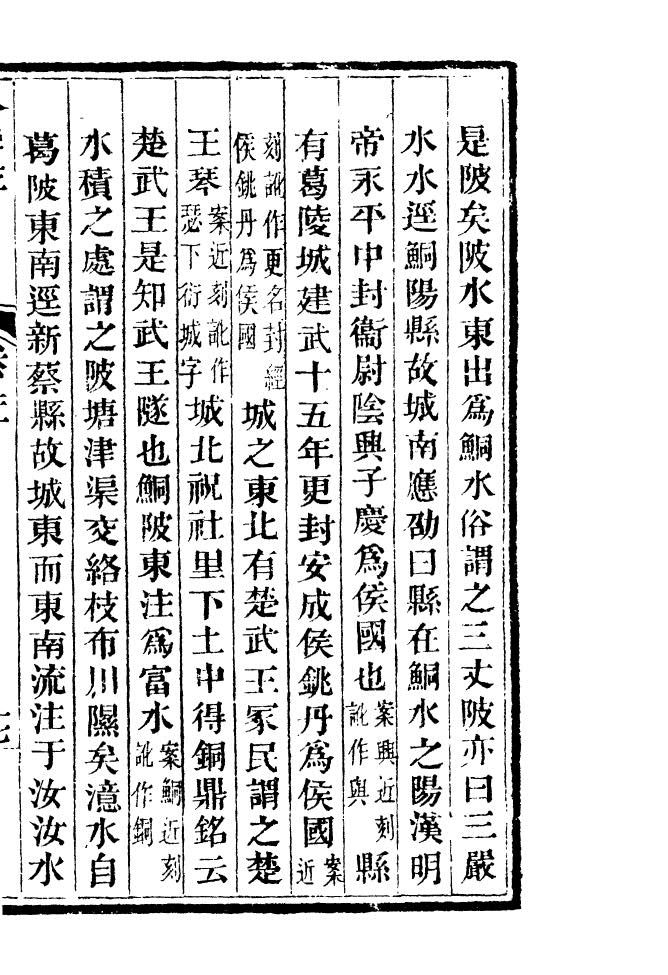 是陂矣陂水東出爲鮦水俗謂之三丈陂亦曰三嚴
水水逕鮦陽縣故城南應劭曰縣在鮦水之陽漢明
帝永平中封衞尉陰興子慶爲侯國也案興近刻訛作與縣
有葛陵城建武十五年更封安成侯銚丹爲侯國案近
刻訛作更名封經侯銚丹爲侯國城之東北有楚武王冢民謂之楚
王琴案近刻訛作瑟下衍城字城北祝社里下土中得銅鼎銘云
楚武王是知武王隧也鮦陂東注爲富水案鮦近刻訛作銅
水積之處謂之陂塘津渠交絡枝布川隰矣澺水自
葛陂東南逕新蔡縣故城東而東南流注于汝汝水